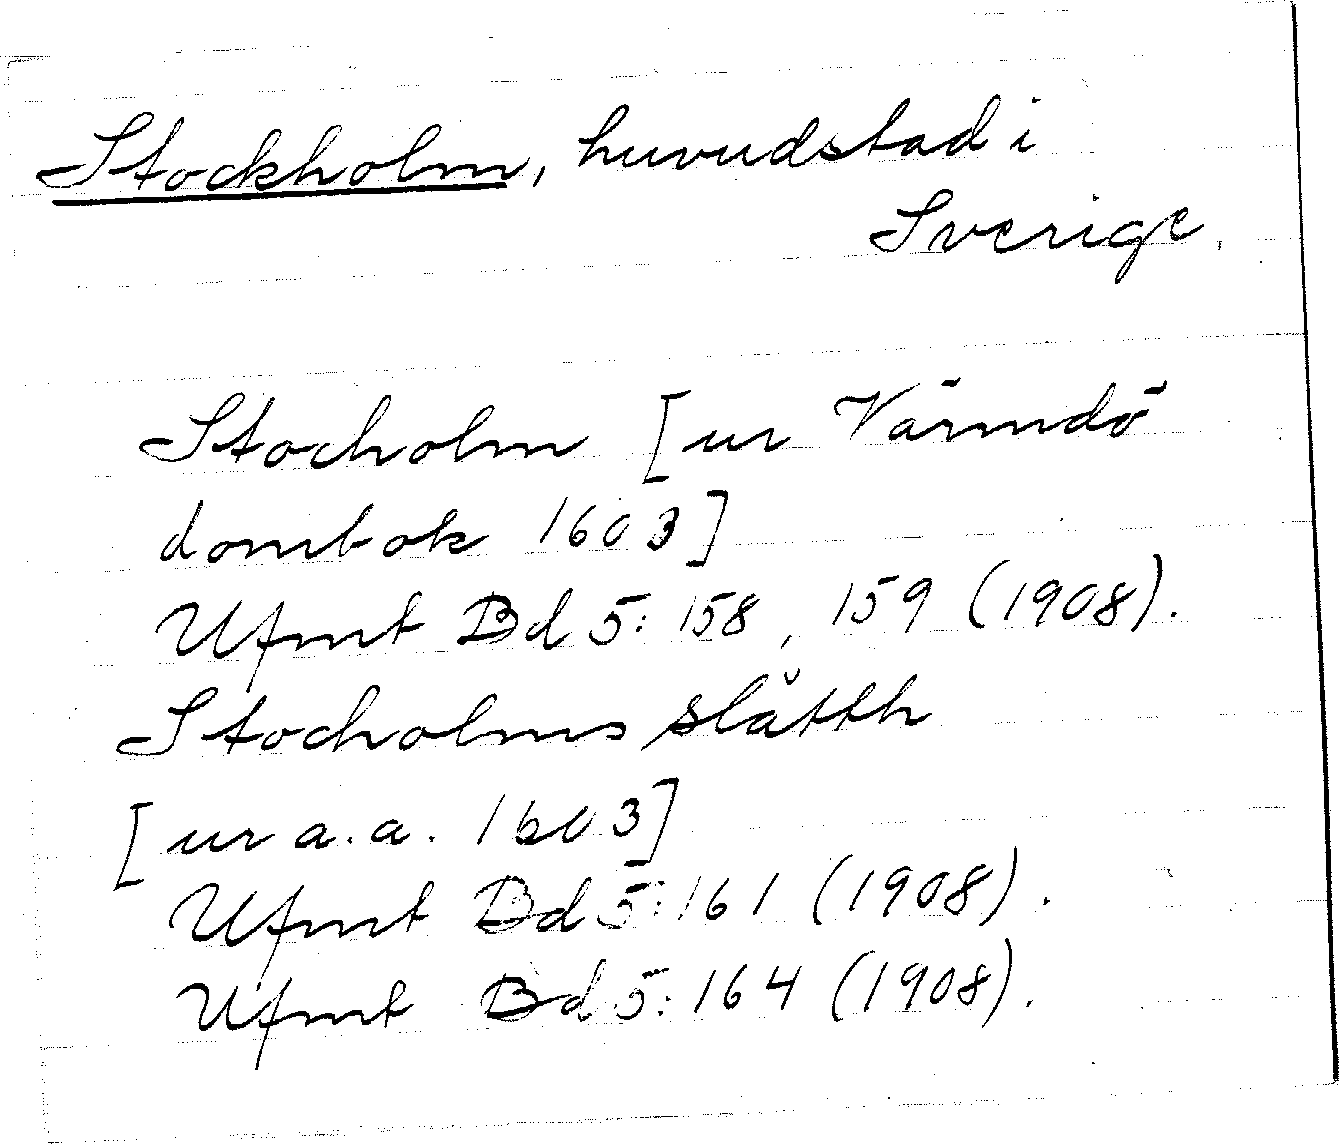 Stockholm, huvudstad i
Sverige.
Stocholm [ur Värmdö
dombok 1603]
Ufmt Bd 5: 158, 159 (1908).
Stocholms slåtth
[ur a.a. 1603]
Ufmt Bd 5: 161 (1908).
Ufmt Bd 5: 164 (1908).